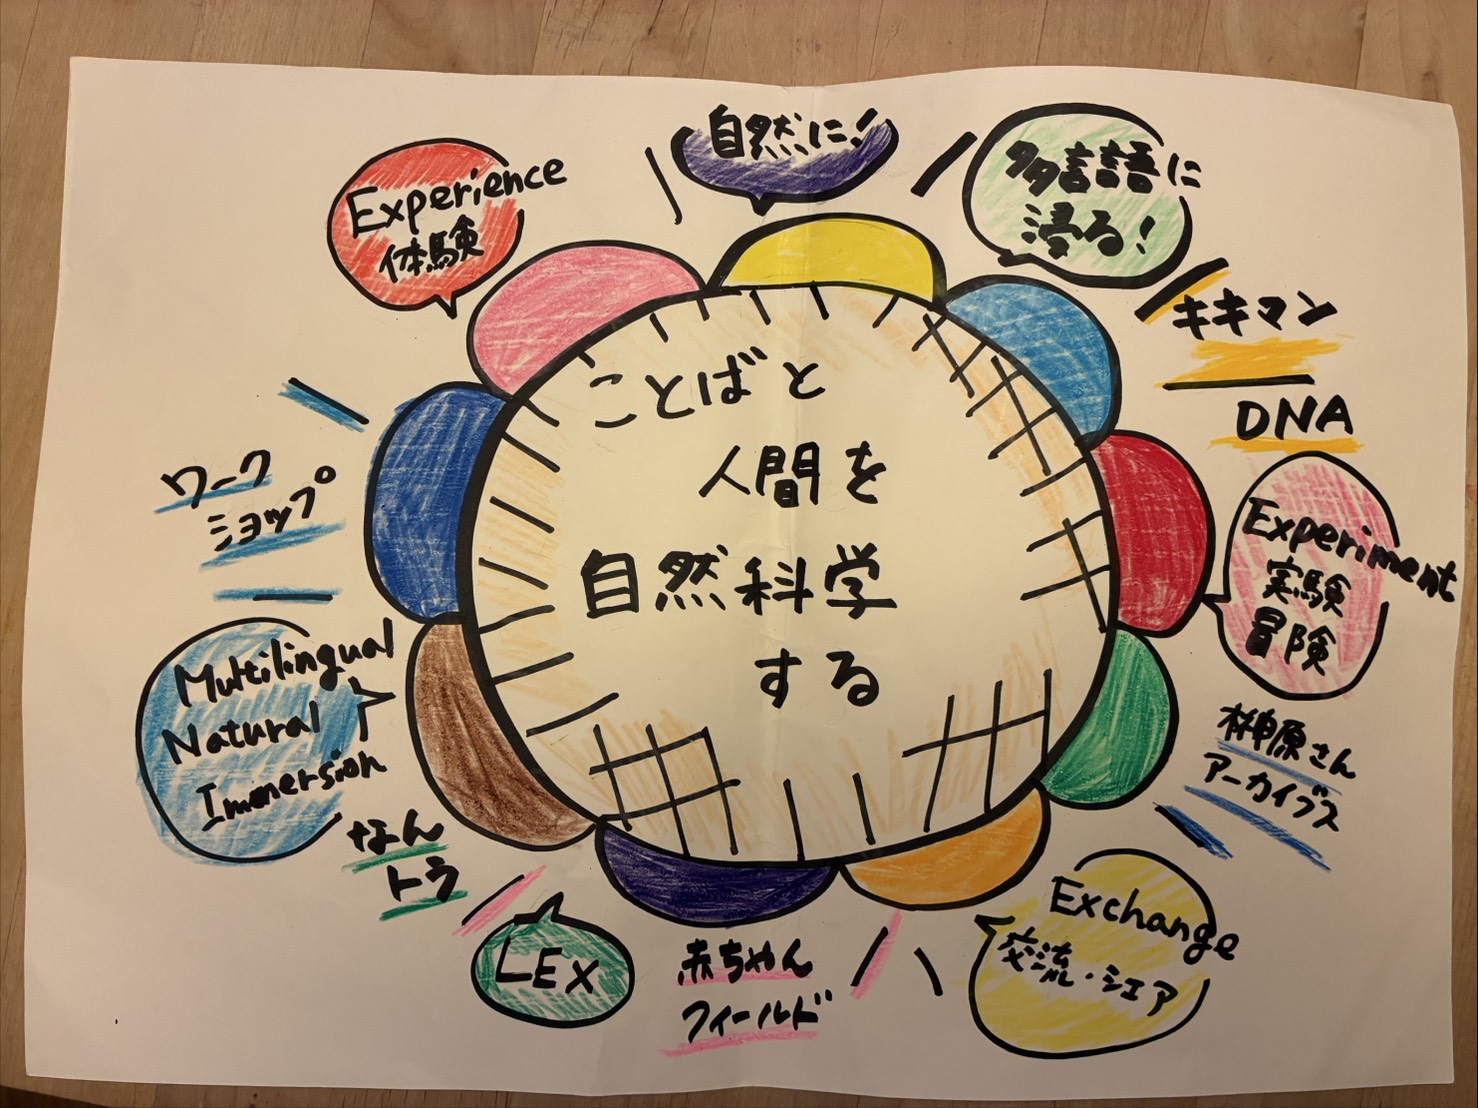 ことばと
人間を
自然科学
する
自然に!
多言語に
浸る!
キキマン
DNA
Experiment
実験
冒険
榊原さん
アーカイブス
Exchange
交流・シェア
赤ちゃん
フィールド
LEX
なん
トラ
Multilingual
Natural
Immersion
ワーク
ショップ
Experience
体験